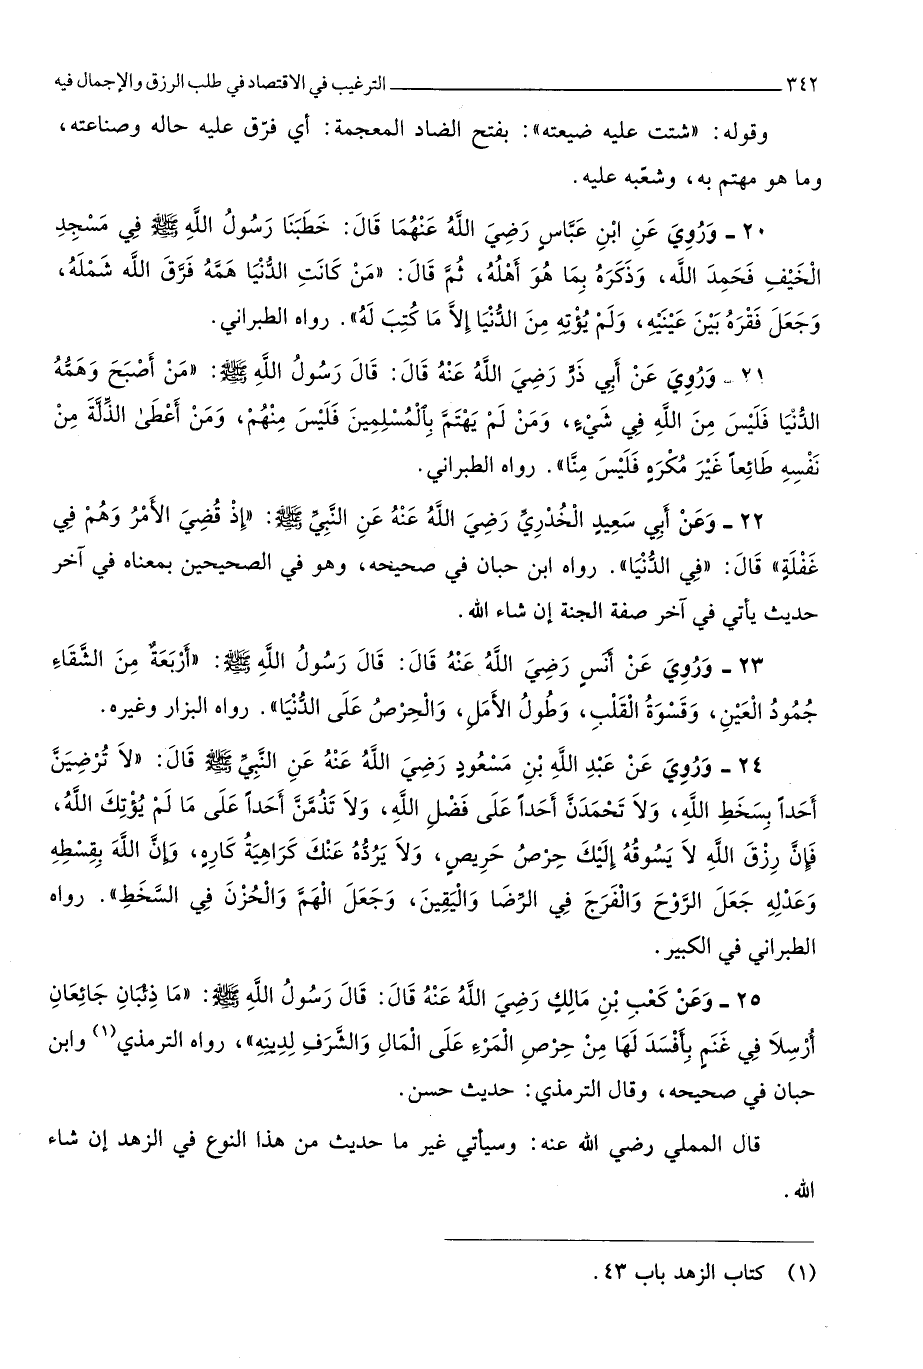 ٣٤٢ ـــــــــ الترغيب في الاقتصاد في طلب الرزق والإجمال فيه
وقوله: «شتت عليه ضيعته»: بفتح الضاد المعجمة: أي فرّق عليه حاله وصناعته،
وما هو مهتم به، وشعّبه عليه.
٢٠ ـ وَرُوِيَ عَنِ ابْنِ عَبَّاسٍ رَضِيَ اللَّهُ عَنْهُمَا قَالَ: خَطَبَنَا رَسُولُ اللَّهِ ﷺ فِي مَسْجِدِ
الْخَيْفِ فَحَمِدَ الله، وَذَكَرَهُ بِمَا هُوَ أَهْلُهُ، ثُمَّ قَالَ: «مَنْ كَانَتِ الدُّنْيَا هَمَّهُ فَرَّقَ اللَّه شَمْلَهُ،
وَجَعَلَ فَقْرَهُ بَيْنَ عَيْنَيْهِ، وَلَمْ يُؤْتِهِ مِنَ الدُّنْيَا إِلاَّ مَا كُتِبَ لَهُ». رواه الطبراني.
٢١ ـ وَرُوِيَ عَنْ أَبِي ذَرٍّ رَضِيَ اللَّهُ عَنْهُ قَالَ: قَالَ رَسُولُ اللَّهِ ﷺ: «مَنْ أَصْبَحَ وَهَمُّهُ
الدُّنْيَا فَلَيْسَ مِنَ اللَّهِ فِي شَيْءٍ، وَمَنْ لَمْ يَهْتَمَّ بِٱلْمُسْلِمِينَ فَلَيْسَ مِنْهُمْ، وَمَنْ أَعْطَىٰ الذِّلَّةَ مِنْ
نَفْسِهِ طَائِعاً غَيْرَ مُكْرَهٍ فَلَيْسَ مِنَّا». رواه الطبراني.
٢٢ ـ وَعَنْ أَبِي سَعِيدٍ الْخُدْرِيِّ رَضِيَ اللَّهُ عَنْهُ عَنِ النَّبِيِّ ﷺ: «إِذْ قُضِيَ الأَمْرُ وَهُمْ فِي
غَفْلَةٍ» قَالَ: «فِي الدُّنْيَا». رواه ابن حبان في صحيحه، وهو في الصحيحين بمعناه في آخر
حديث يأتي في آخر صفة الجنة إن شاء الله.
٢٣ ـ وَرُوِيَ عَنْ أَنَسٍ رَضِيَ اللَّهُ عَنْهُ قَالَ: قَالَ رَسُولُ اللَّهِ ﷺ: «أَرْبَعَةٌ مِنَ الشَّقَاءِ
جُمُودُ الْعَيْنِ، وَقَسْوَةُ الْقَلْبِ، وَطُولُ الأَمَلِ، وَالْحِرْصُ عَلَى الدُّنْيَا». رواه البزار وغيره.
٢٤ ـ وَرُوِيَ عَنْ عَبْدِ اللَّهِ بْنِ مَسْعُودٍ رَضِيَ اللَّهُ عَنْهُ عَنِ النَّبِيِّ ﷺ قَالَ: «لاَ تُرْضِيَنَّ
أَحَداً بِسَخَطِ اللَّهِ، وَلاَ تَحْمَدَنَّ أَحَداً عَلَى فَضْلِ اللَّهِ، وَلاَ تَذُمَّنَّ أَحَداً عَلَى مَا لَمْ يُؤْتِكَ اللَّهُ،
فَإِنَّ رِزْقَ اللَّهِ لاَ يَسُوقُهُ إِلَيْكَ حِرْصُ حَرِيصٍ، وَلاَ يَرُدُّهُ عَنْكَ كَرَاهِيَةُ كَارِهٍ، وَإِنَّ اللَّهَ بِقِسْطِهِ
وَعَدْلِهِ جَعَلَ الرَّوْحَ وَالْفَرَجَ فِي الرِّضَا وَالْيَقِينَ، وَجَعَلَ الْهَمَّ وَالْحُزْنَ فِي السَّخَطِ». رواه
الطبراني في الكبير.
٢٥ ـ وَعَنْ كَعْبِ بْنِ مَالِكٍ رَضِيَ اللَّهُ عَنْهُ قَالَ: قَالَ رَسُولُ اللَّهِ ﷺ: «مَا ذِئْبَانِ جَائِعَانِ
أُرْسِلَا فِي غَنَمٍ بِأَفْسَدَ لَهَا مِنْ حِرْصِ الْمَرْءِ عَلَى الْمَالِ وَالشَّرَفِ لِدِينِهِ»، رواه الترمذي(١) وابن
حبان في صحيحه، وقال الترمذي: حديث حسن.
قال المملي رضي الله عنه: وسيأتي غير ما حديث من هذا النوع في الزهد إن شاء
الله.
(١) كتاب الزهد باب ٤٣.